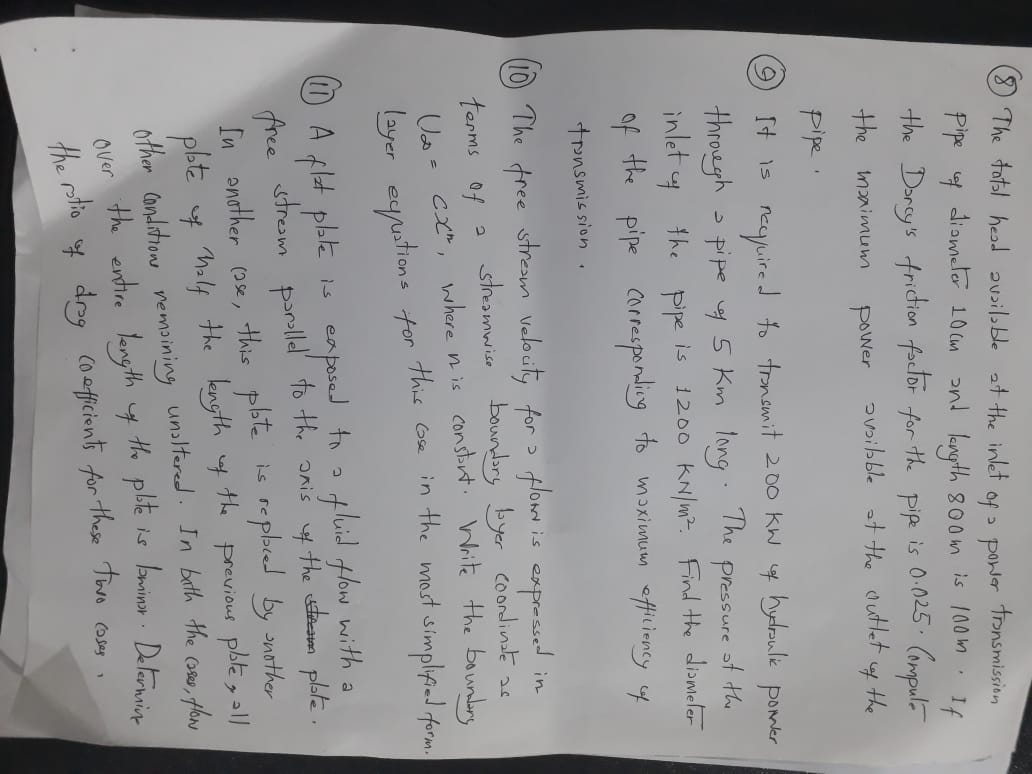 ⑧ The total head available at the inlet of a power transmission
pipe of diameter 10cm and length 800m is 100m. If
the Darcy's friction factor for the pipe is 0.025. Compute
the maximum power available at the outlet of the
pipe.
⑨ It is required to transmit 200 KW of hydraulic power
through a pipe of 5 Km long. The pressure at the
inlet of the pipe is 1200 KN/m². Find the diameter
of the pipe corresponding to maximum efficiency of
transmission.
⑩ The free stream velocity for a flow is expressed in
terms of a streamwise boundary layer coordinate as
U∞ = cxⁿ, where n is constant. Write the boundary
layer equations for this case in the most simplified form.
⑪ A flat plate is exposed to a fluid flow with a
free stream parallel to the axis of the stream plate.
In another case, this plate is replaced by another
plate of half the length of the previous plate, all
other conditions remaining unaltered. In both the cases, flow
over the entire length of the plate is laminar. Determine
the ratio of drag coefficients for these two cases.